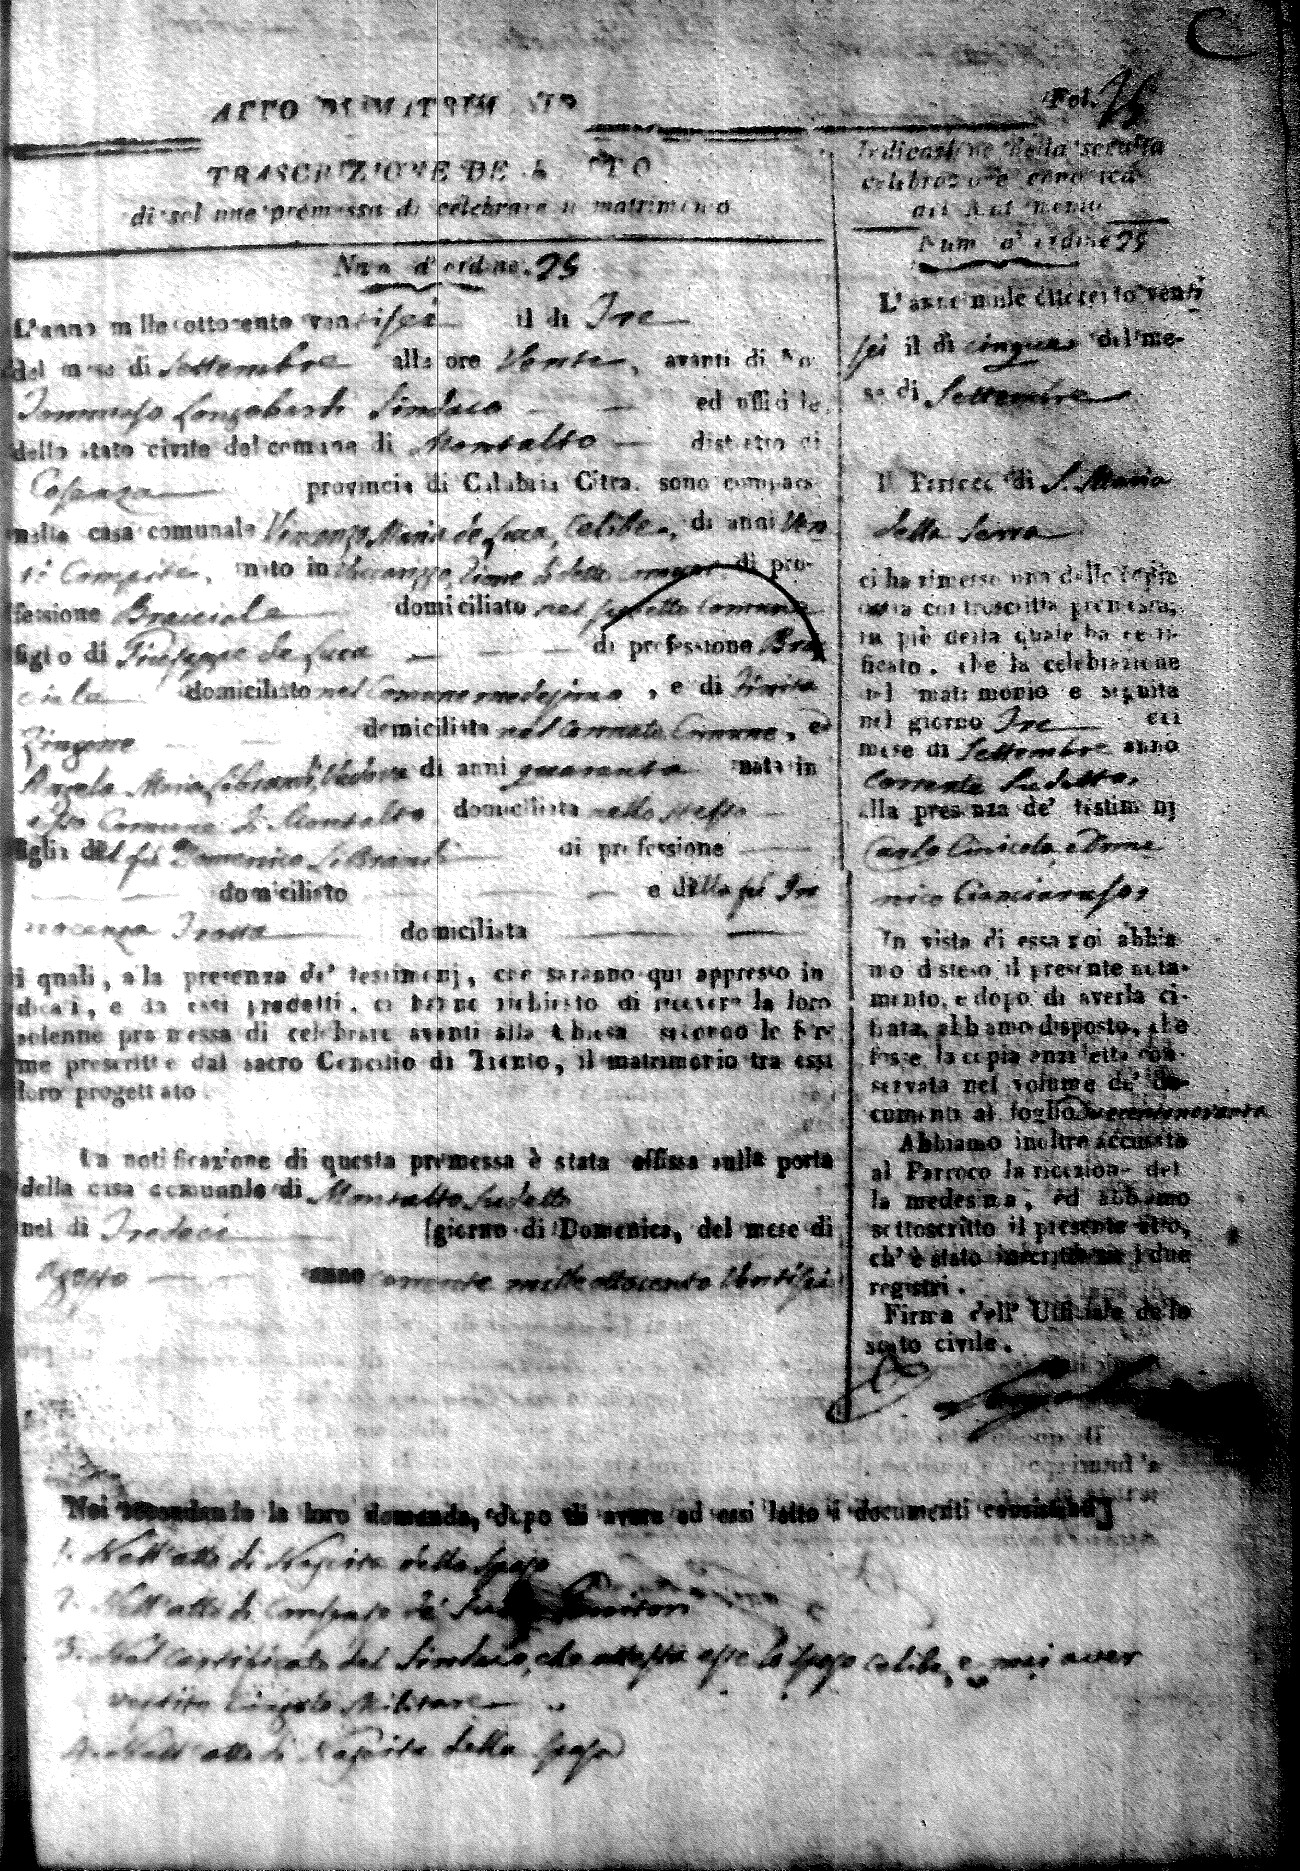 Fol. 75
ATTO DI MATRIMONIO
TRASCRIZIONE DE L'ATTO
di solenne promessa di celebrare il matrimonio
Num. d'ordine. 75
L'anno mille ottocento ventisei il di Tre
del mese di Settembre alle ore Venti, avanti di Noi
Tommaso Longobardi Sindaco ed uffiziale
dello stato civile del comune di Montalto distretto di
Cosenza provincia di Calabria Citra. sono comparsi
nella casa comunale Vincenzo Maria de Luca, Celibe, di anni Ven
ti Compiti, nato in di pro-
fessione Bracciale domiciliato nel Comune
figlio di Giuseppe de Luca di professione Brac
ciale domiciliato nel Comune medesimo, e di
Zingone domiciliata nel Comune, ed
Angela Maria Vedova di anni quaranta nata in
Comune di Montalto domiciliata nello stesso
figlia del fù Domenico di professione
domiciliato e della fù In
nocenza domiciliata
i quali, alla presenza de' testimonj, che saranno qui appresso in
dicati, e da essi prodotti, ci hanno richiesto di ricevere la loro
solenne promessa di celebrare avanti alla Chiesa secondo le for
me prescritte dal sacro Concilio di Trento, il matrimonio tra essi
loro progettato.
La notificazione di questa promessa è stata affissa sulla porta
della casa comunale di Montalto sudetto
nel di Tredeci giorno di Domenica, del mese di
Agosto anno corrente mille ottocento Ventisei
Indicazione della seguita
celebrazione canonica
del matrimonio
Num. d'ordine 75
L'anno mille ottocento venti
sei il di cinque del me-
se di Settembre
Il Parroco di S. Maria
della Serra
ci ha rimesso una delle copie
della controscritta promessa,
in piè della quale ha certi-
ficato, che la celebrazione
del matrimonio è seguita
nel giorno Tre del
mese di Settembre anno
corrente sudetto,
alla presenza de' testimonj
Carlo e Dome
nico
In vista di essa noi abbia-
mo disteso il presente nota-
mento, e dopo di averla ci-
frata, abbiamo disposto, che
fosse la copia anzidetta con-
servata nel volume de' do-
cumenti al foglio
Abbiamo inoltre accusata
al Parroco la ricezione del
la medesima, ed abbiamo
sottoscritto il presente atto,
ch'è stato inscritto ne' due
registri.
Firma dell' Uffiziale dello
stato civile.
Noi secondando la loro domanda, dopo di avere ad essi letto i documenti consistenti
1. Nell'atto di Nascita dello sposo
2. Nell'atto di Consenso de' Genitori
3. Nel Certificato del Sindaco, che attesta esse lo sposo celibe, e mai aver
vestito Cingolo Militare
4. Nell'atto di Nascita della sposa